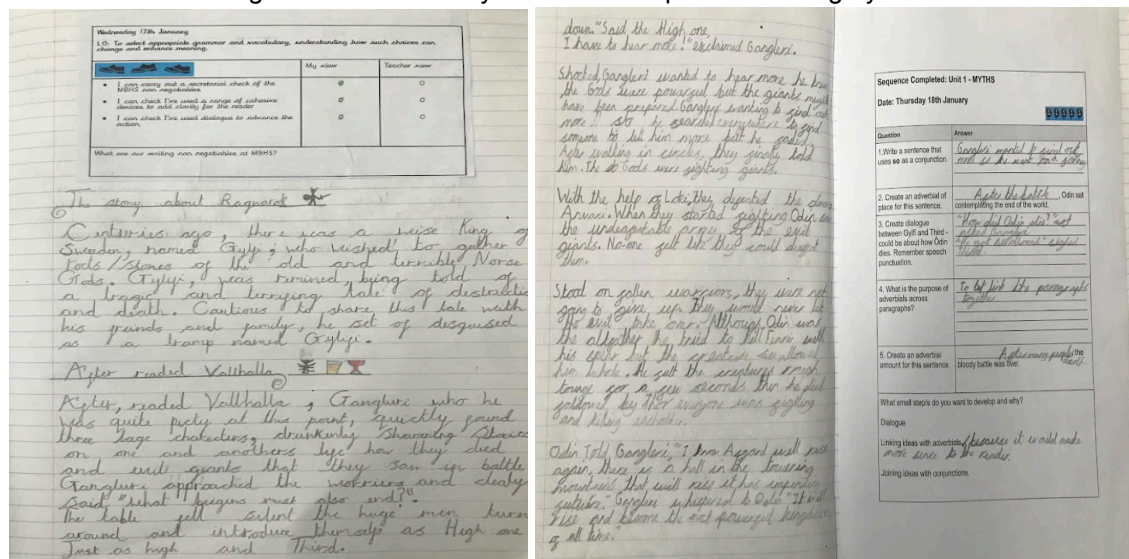 Wednesday 17th January
L.O: To select appropriate grammar and vocabulary, understanding how such choices can
change and enhance meaning.
My view
Teacher view
I can carry out a secretarial check of the
MBHS non negotiables
I can check I've used a range of cohesive
devices to add clarity for the reader
I can check I've used dialogue to advance the
action.
What are our writing non negotiables at MBHS?
The story about Ragnarok
Centuries ago, there was a wise King of
Sweden, named Gylfi; who wished to gather
Gods / stones of the old and terrible Norse
Gods. Gylfi, was remined, being told of
a tragic and terrying tale of destructio
and death. Cautious to share this tale with
his freinds and family, he set of desguised
as a tramp named Gylfi.
After readed Vallhalla
After, readed Vallhalla, Gangluri who he
was quite at this point, quickly found
three lage drunkenly sharring
on one and anothers how they died
and evil giants that they saw in battle
Gangluri approached the worriers and clealy
said "what beegins must also end?".
The table fell silent the huge men turn
around and introduce themselfs as High one
Just as high and Third.
down. "Said the High one,
I have to hear more!" exclaimed Gangleri.
Shocked, Gangleri wanted to hear more he knew
the Gods were powerful but the giants might
have been prepared. Gangleri wanting to find out
more! so he searched everywhere to find
someone to tell him more but he failed.
After walking in circles, they finaly told
him. The Gods were fighting giants.
With the help of Loki, they defeated the
Anvari. When they started fighting Odin
the undefeatable army of the evil
giants. No-one felt like they could defeat
them.
Stood on fallen warriors, they were not
going to give up they would never let
the evil take over. Although Odin was
the allfather he tried to kill Fenrir with
his spear but the creature swallowed
him whole. He felt the creatures rough
tounge for a few seconds then he
followed by Thor everyone was fighting
and killing
Odin Told Gangleri, "I know Asgard will raise
again, there is a hall in the towering
mountains that will rise it has
future." Gangleri whispered to Odin "It will
rise and become the most powerful kingdom
of all time."
Sequence Completed: Unit 1 - MYTHS
Date: Thursday 18th January
Question
Answer
1. Write a sentence that
uses so as a conjunction.
Gangleri wanted to find out
more so he went on a
2. Create an adverbial of
place for this sentence.
After the battle, Odin sat
contemplating the end of the world.
3. Create dialogue
between Gylfi and Third -
could be about how Odin
dies. Remember speech
punctuation.
"How did Odin die?"
asked Gangleri
"He got swallowed"
Third.
4. What is the purpose of
adverbials across
paragraphs?
To link the paragraphs
together
5. Create an adverbial
amount for this sentence.
After many people the
bloody battle was over.
What small step/s do you want to develop and why?
Dialogue
Linking ideas with adverbials, because it would make
more sense to the reader.
Joining ideas with conjunctions.